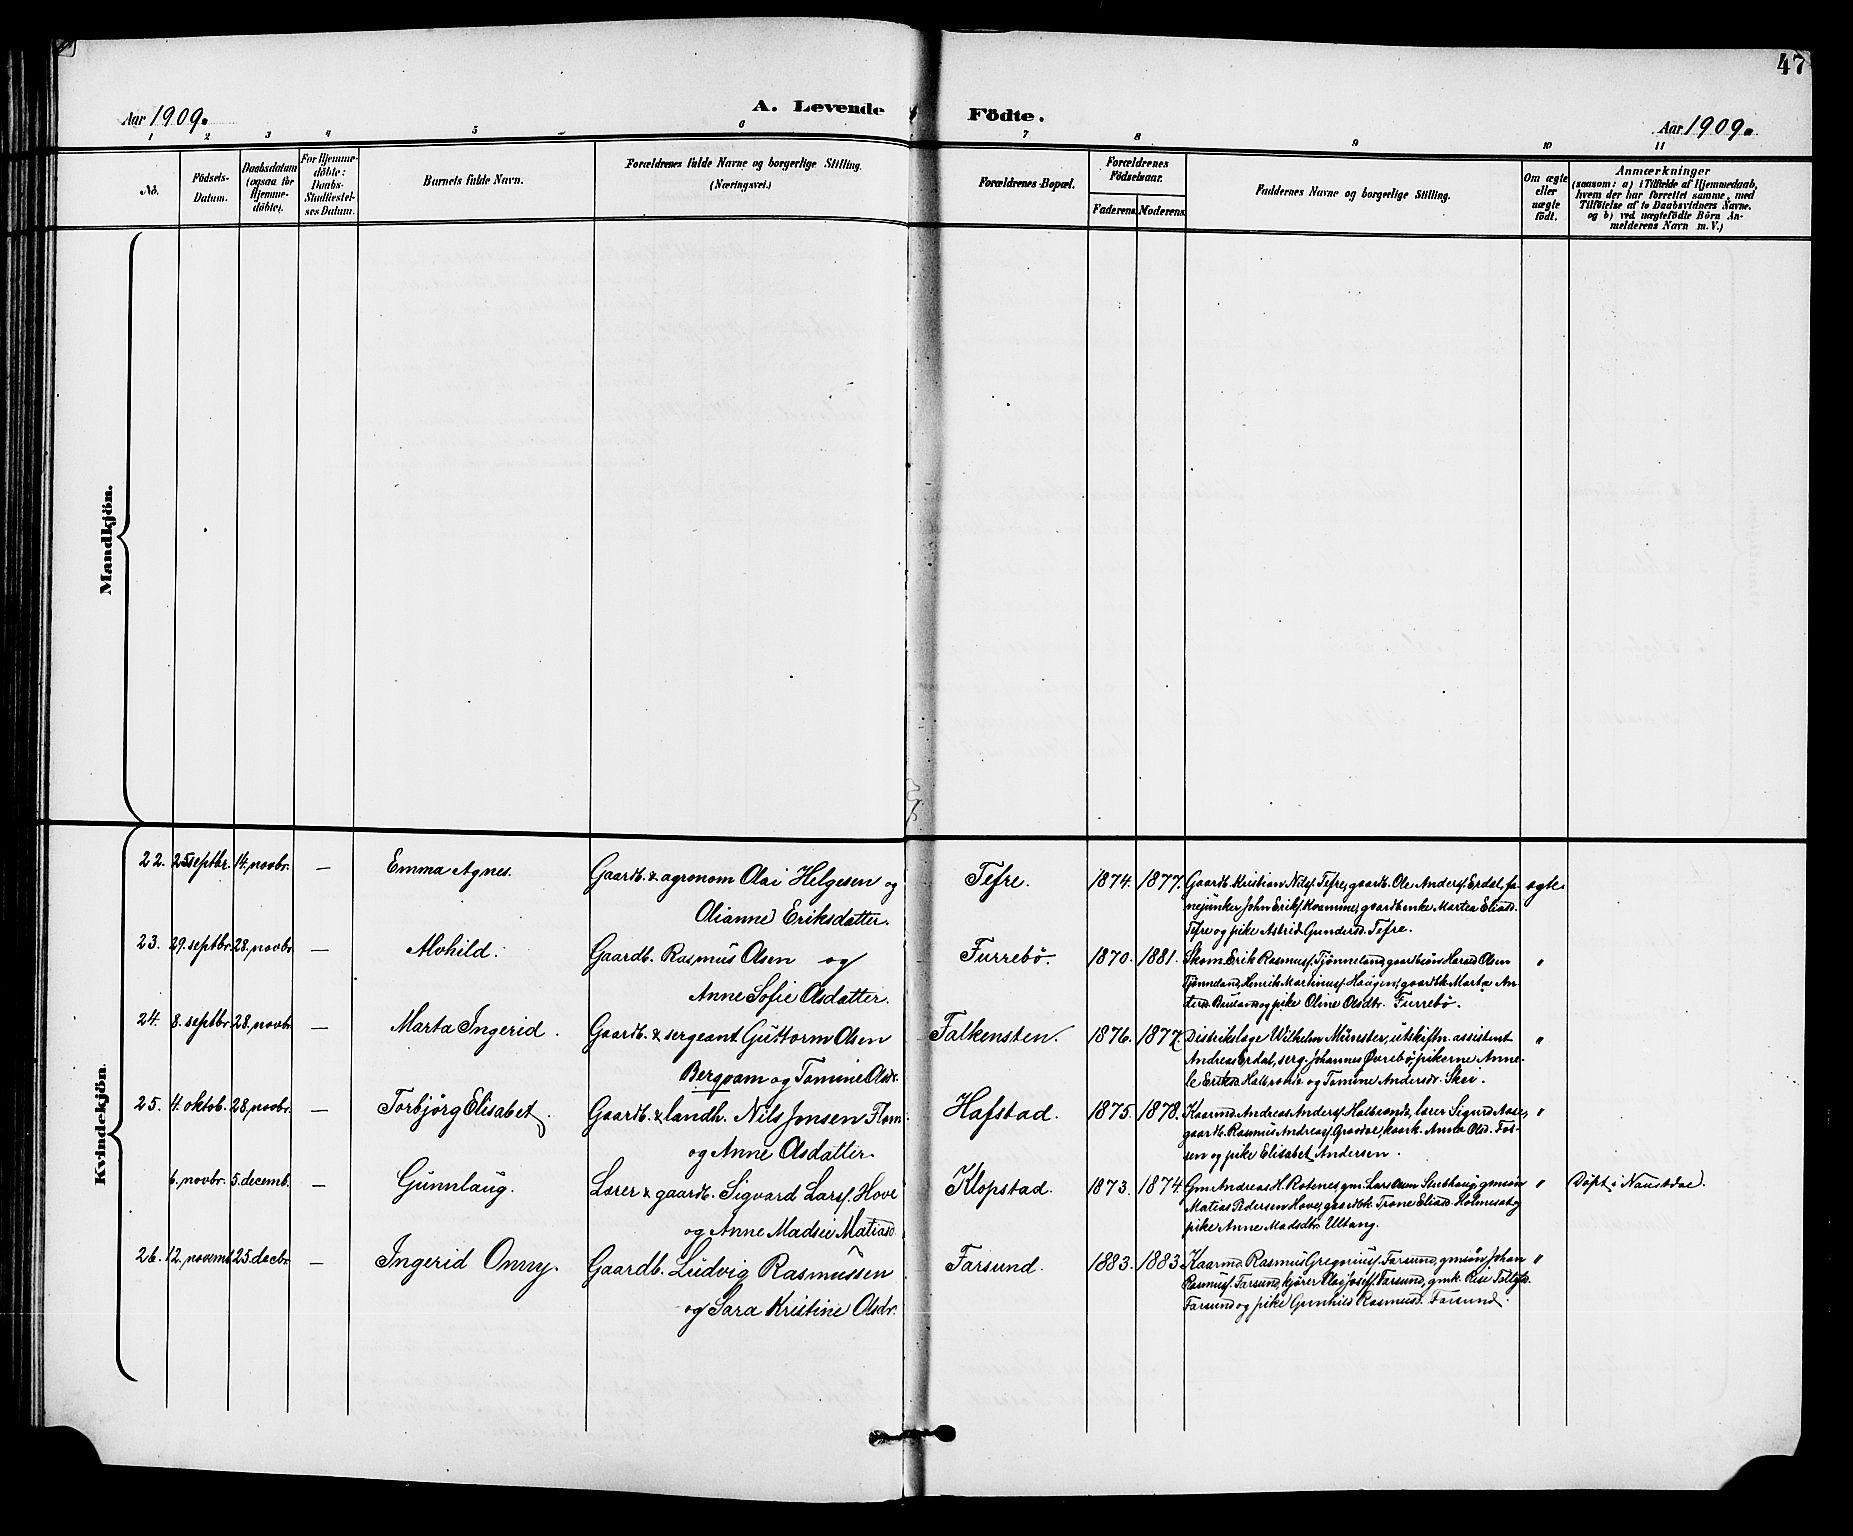 47
Aar 1909.
A. Levende Födte.
Aar 1909.
1 2 3 4 5 6 7 8 9 10 11
No.
Födsels-
Datum.
Daabsdatum
(ogsaa for
Hjemme-
döbte).
For Hjemme-
döbte:
Daabs-
Stadfæstel-
ses Datum.
Barnets fulde Navn.
Forældrenes fulde Navne og borgerlige Stilling.
(Næringsvei.)
Forældrenes Bopæl.
Forældrenes
Födselsaar.
Faderens. Moderens.
Faddernes Navne og borgerlige Stilling.
Om ægte
eller
uægte
födt.
Anmærkninger
(saasom: a) i Tilfælde af Hjemmedaab,
hvem der har forrettet samme, med
Tilföielse af to Daabsvidners Navne.
og b) ved uægtefödte Börn An-
melderens Navn m. V.)
Mandkjön.
Kvindekjön.
22. 25 septbr. 14. novbr. — Emma Agnes. Gaardb. & agronom Olai Helgesen og
Olianne Eriksdatter.
Tefre. 1874. 1877. Gaardb. Kristian Nilsf. Tefre, gaardb. Ole Andersf. Erdal, fa-
nejunker John Eriksf. Kvamme, gaardbenke Martea Eliasd.
Tefre og pike Astrid Gundersd. Tefre.
ægte
23. 29. septbr. 28. novbr. — Alvhild. Gaardb. Rasmus Olsen og
Anne Sofie Olsdatter.
Furrebö. 1870. 1881. Skom. Erik Rasmusf. Tjönneland, gaardbsön Harald Olsen
Tjönneland, Henrik Martinusf. Haugen, gaardbk. Marta An-
dersd. og pike Oline Olsdtr. Furrebö.
"
24. 8. septbr. 28. novbr. — Marta Ingerid. Gaardb. & sergeant Guttorm Olsen
Bergvam og Tomine Olsdr.
Falkensten. 1876. 1877. Distrikslæge Wilhelm Münster, utskiftn. assistent
Andreas Erdal, serg. Johannes Övrebö, pikerne Anne-
le Eriksd. Halbrende og Tomine Andersdr. Skei.
"
25. 4. oktob. 28. novbr. — Torbjörg Elisabet. Gaardb. & landh. Nils Jonsen Flom
og Anne Olsdatter.
Hafstad. 1875. 1878. Kaarmd. Andreas Andersf. Halbrende, lærer Sigurd Aase,
gaardb. Rasmus Andreasf. kaark. Anna Olsd. Fos-
sen og pike Elisabet Andersen.
"
6. novbr. 5. decemb. — Gunnlaug. Lærer & gaardb. Sigvard Larsf. Hove
og Anne Madsei Matiasd.
Klopstad. 1873. 1874. Gm. Andreas H. Rotenes, gm. Lars gmsön
Matias Pedersen Hove, gaardbk. Trone Eliasd. Holmeset og
pike Anne Madsdtr. Ultang.
" Döpt i Naustdal.
26. 12. novemb. 25. decbr. — Ingerid Onny. Gaardb. Ludvig Rasmussen
og Sara Kristine Olsdr.
Farsund. 1883. 1883. Kaarmd. Rasmus Gregoriusf. Farsund, gmsön Johan
Rasmusf. Farsund, kjörer Olai Josefsf. Farsund, gmk.
Farsund og pike Gunhild Rasmusd. Farsund.
"